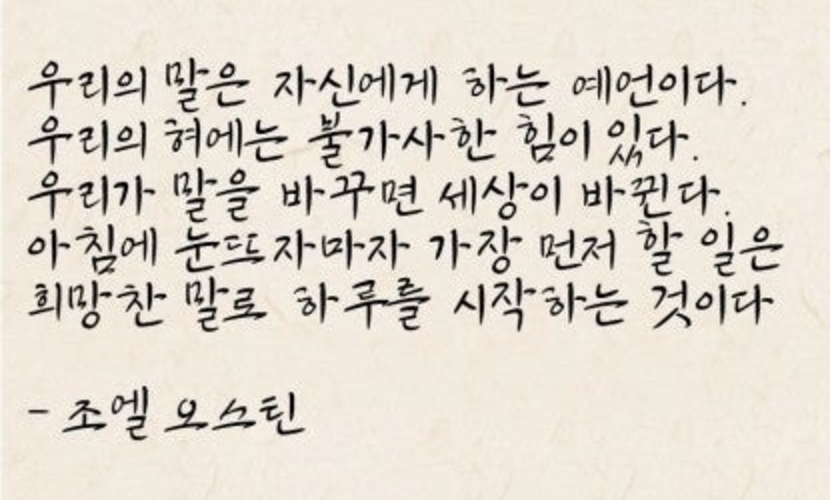 우리의 말은 자신에게 하는 예언이다.
우리의 혀에는 불가사한 힘이 있다.
우리가 말을 바꾸면 세상이 바뀐다.
아침에 눈뜨자마자 가장 먼저 할 일은
희망찬 말로 하루를 시작하는 것이다
- 조엘 오스틴